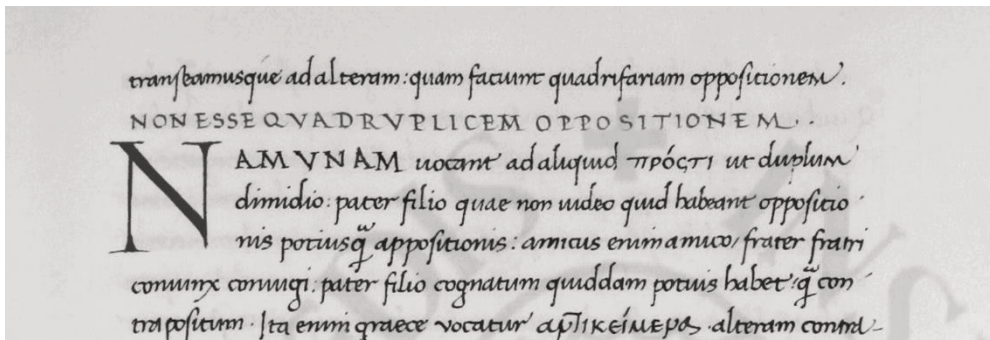 transeamusque ad alteram: quam faciunt quadrifariam oppositionem.
NON ESSE QVADRVPLICEM OPPOSITIONEM..
NAM VNAM uocant ad aliquid πρόςτι ut duplum
dimidio: pater filio quae non uideo quid habeant oppositio
nis potiusq̃ appositionis: amicus enim amico/ frater fratri
coniunx coniugi: pater filio cognatum quiddam potius habet: q̃ con
trapositum. Ita enim graece vocatur .alteram contra-